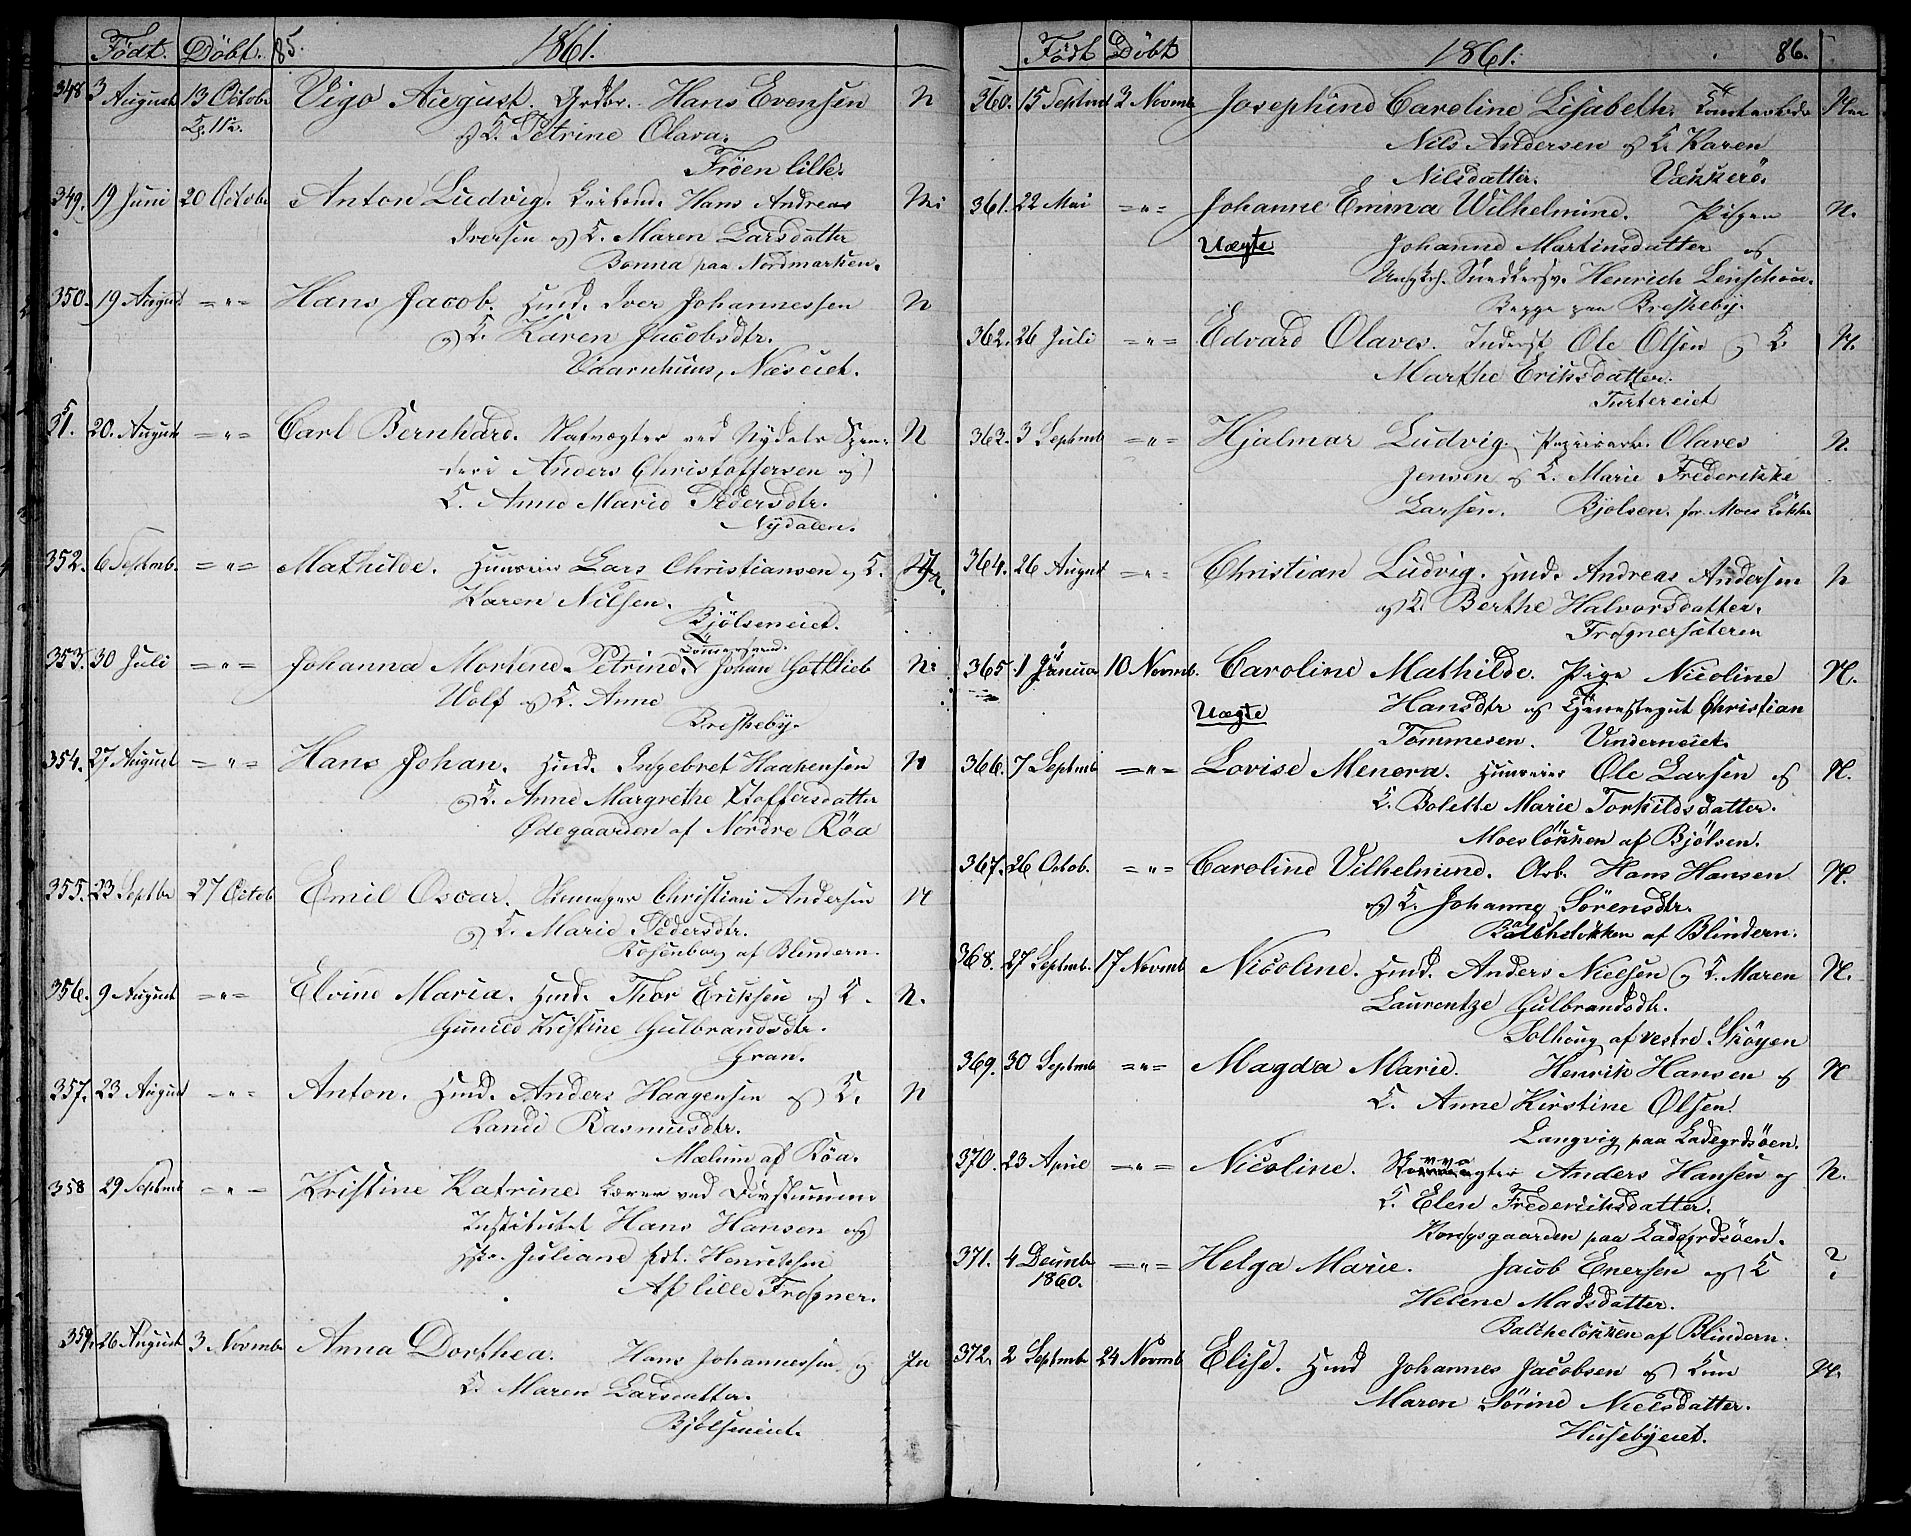 Födt. Döbt. 85. 1861.
348 3 August 13 Octob. Vigo August. Grdbr. Hans Evensen N
Lp. 11½. og K. Petrine Olava.
Fröen lille.
349. 19 Juni 20 Octob. Anton Ludvig. Hans Andreas
Iversen og K. Maren Larsdatter
Bonna paa Nordmarken.
350. 19 August =„= Hans Jacob. Hmd. Iver Johannessen N
og K. Karen Jacobsdtr.
Vaarnhuus, Næseiet.
51. 20. August =„= Carl Bernhard. Natvægter ved Nydals Spin- N
deri Anders Christoffersen og
K. Anne Marie Pedersdtr.
Nydalen.
352. 6 Septmb. =„= Mathilde. Huuseier Lars Christiansen og K.
Karen Nilsen.
Bjölseneiet.
353. 30 Juli =„= Johanna Mortene Petrine. Tömmermd. Johan Gottlieb N
Wolf og K. Anne
Briskeby.
354. 27 August =„= Hans Johan. Hmd. Ingebret Haakensen N
og K. Anne Margrethe Stoffersdatter
Ödegaarden af Nordre Röa
355. 23 Septbr 27 Octob Emil Oscar. Christian Andersen N
og K. Marie Pedersdtr.
Rosenborg af Blindern.
356. 9 August =„= Elvine Maria. Hmd. Thor Eriksen og K. N.
Gunild Kristine Gulbrandsdtr.
Gran.
357. 23 August =„= Anton. Hmd. Anders Haagensen og K. N
Randi Rasmusdtr.
Mælum af Röa.
358 29 Septmb =„= Kristine Katrine. Lærer ved Dövstumme
Institutet Hans Hansen og
Juliane fdt. Henriksen
Af lille Frogner.
359. 26 August 3 Novmb. Anna Dorthea. Hans Johannessen og Ja
K. Maren Larsdatter.
Bjölseneiet.
Födt Döbt 1861. 86.
360. 15 Septmb 3 Novmb Josephine Caroline Lisabeth.
Nils Andersen og K. Karen
Nilsdatter. Vækkerö.
361. 22 Mai =„= Johanne Emma Wilhelmine. Pigen N.
Uægte Johanne Martinsdatter og
Ungk. Snedkersv. Henrich Leuschow.
Begge paa Briskeby.
362. 26 Juli =„= Edvard Olaves. Inderst Ole Olsen og K. N.
Marthe Eriksdatter.
Turtereiet
363. 3 Septmb =„= Hjalmar Ludvig. Papirarb. Olaves N.
Jensen og K. Marie Frederikke
Larsen. Bjölsen. for Moes Lökke
364. 26 August =„= Christian Ludvig. Hmd. Andreas Andersen N
og K. Berthe Halvorsdatter.
Frognersæteren
365 1 Januar 10 Novmb. Caroline Mathilde. Pige Nicoline N.
Uægte Hansdtr og Tjenestegut Christian
Tommesen. Vinderneiet.
366. 7 Septmb =„= Lovise Menora. Huuseier Ole Larsen og N.
K. Bolette Marie Torkildsdatter.
Moeslökken af Bjölsen.
367. 26 Octob. =„= Caroline Vilhelmine. Arb. Hans Hansen N.
og K. Johanne Sörensdtr.
Balchelökken af Blindern.
368. 27 Septmb. 17 Novmb Nicoline. Hmd. Anders Nielsen og K. Maren N.
Laurentze Gulbrandsdtr.
Solhoug af vestre Sköyen
369. 30 Septmb =„= Magda Marie. Henrik Hansen og N
K. Anne Kirstine Olsen.
Langvig paa Ladegrdsöen.
370. 23 April =„= Nicoline. Anders Hansen og N.
K. Elen Frederiksdatter.
Kongsgaarden paa Ladegrdsöen.
371. 4 Decmb 1860. =„= Helga Marie. Jacob Enersen og K ?
Helene Madsdatter.
Balchelökken af Blindern.
372. 2 Septmb 24 Novmb Elise. Hmd Johannes Jacobsen og Kone N.
Maren Sörine Nielsdatter.
Husebyeiet.